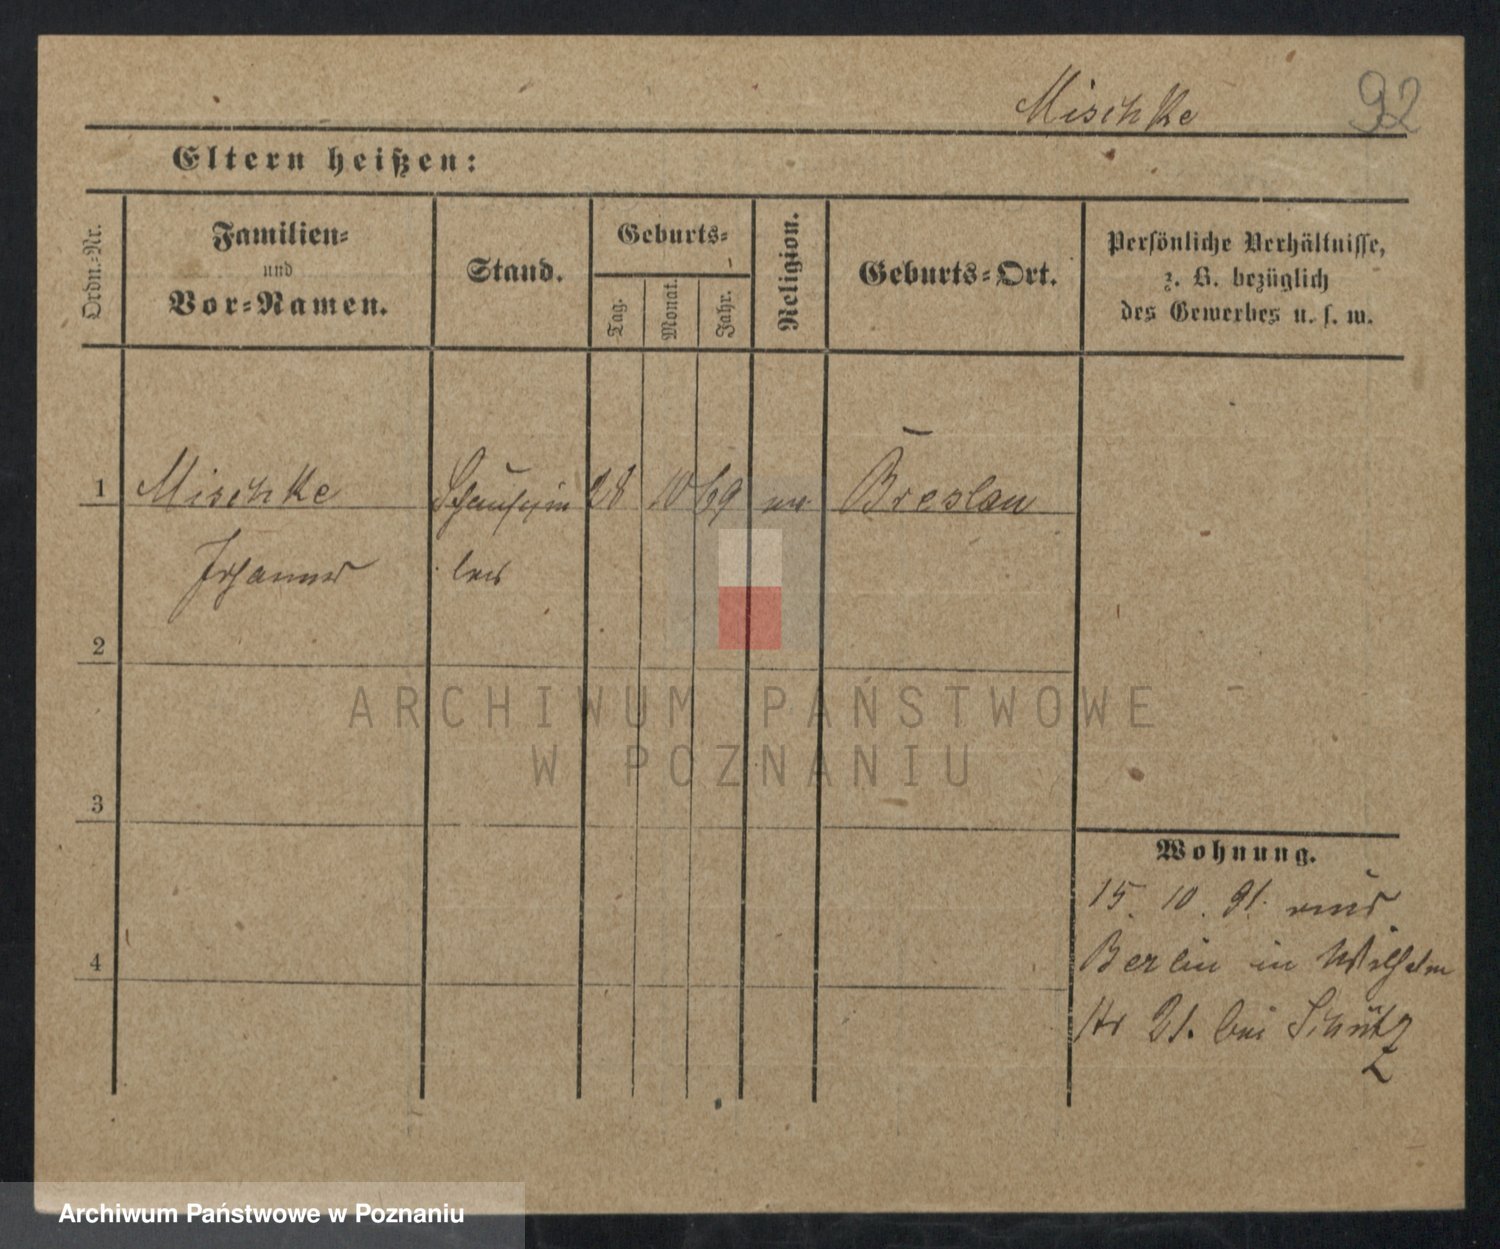 Mischke
92
Eltern heißen:
Ordn.-Nr.
Familien-
und
Vor-Namen.
Stand.
Geburts-
Tag.
Monat.
Jahr.
Religion.
Geburts-Ort.
Persönliche Verhältnisse,
z. B. bezüglich
des Gewerbes u. s. w.
1 Mischke Schauspie 28 10 69 Breslau
ler
2
3
4
Wohnung.
15. 10. 91.
Berlin in Wilhelm
str 21. bei Schütz
ARCHIWUM PAŃSTWOWE
W POZNANIU
Archiwum Państwowe w Poznaniu